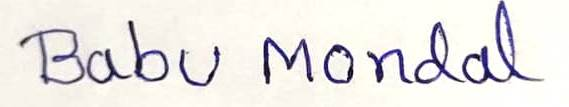 Babu Mondal